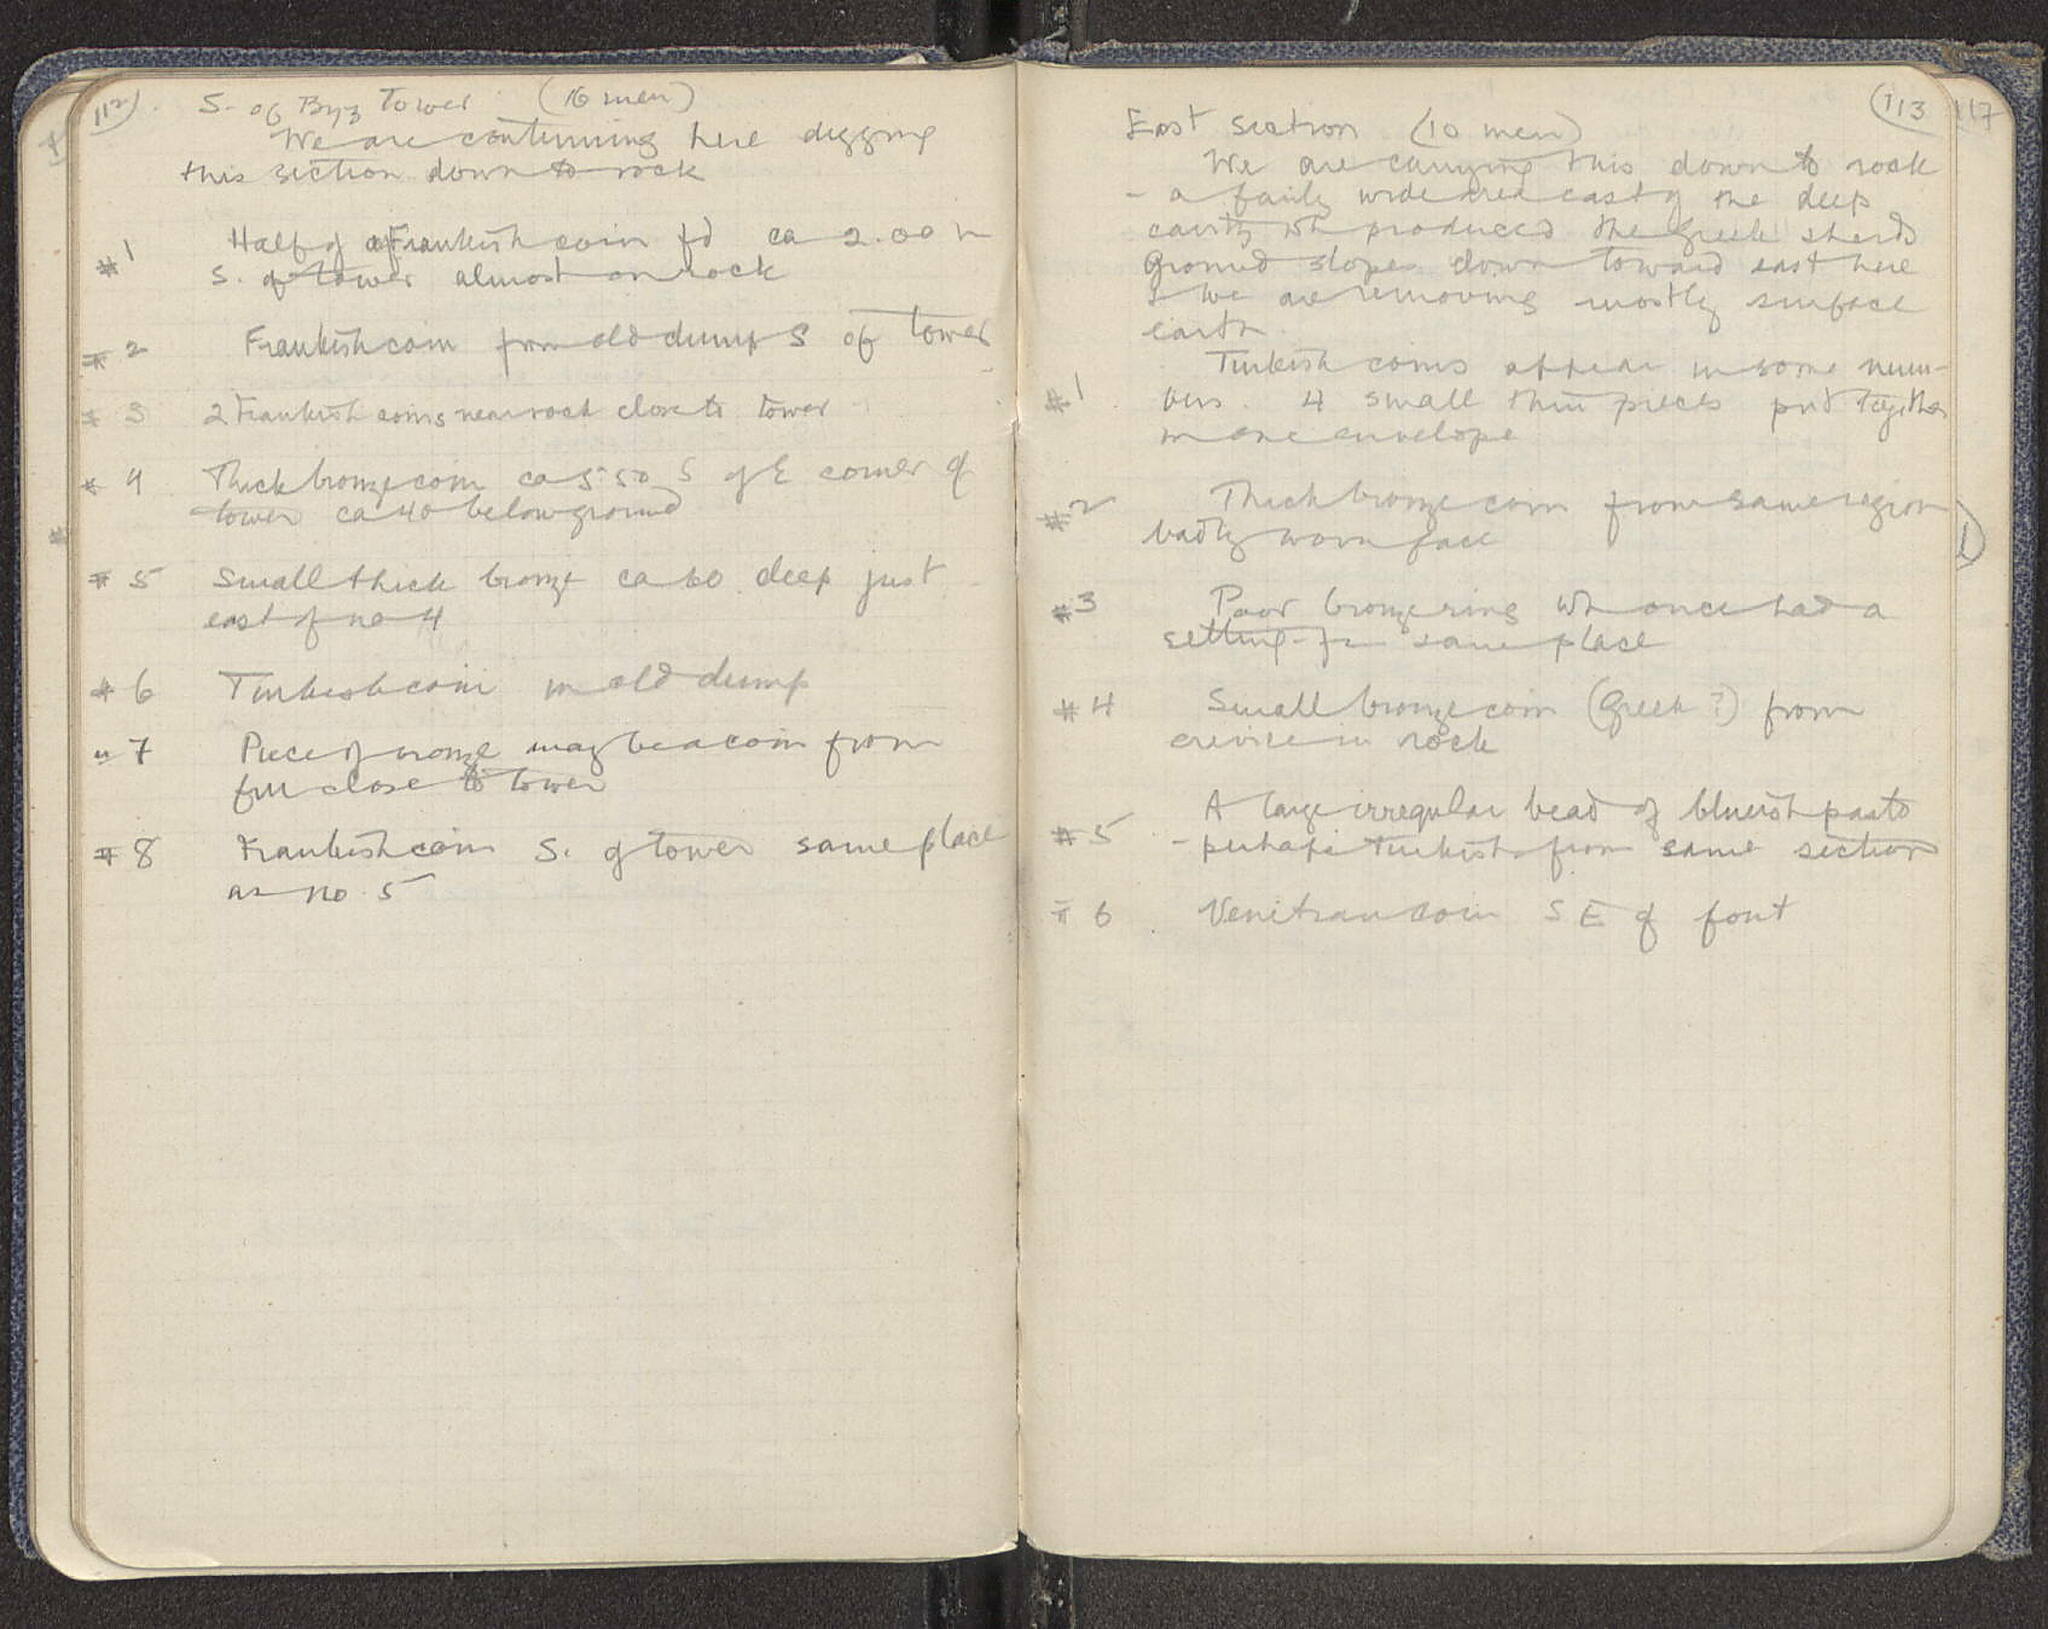 112
S. of Byz Tower (16 men)
We are continuing here digging
this section down to rock
#1 Half of a Frankish coin fd ca 2.00 m
S. of tower almost on rock
#2 Frankish coin from old dump S of tower
#3 2 Frankish coins near rock close to tower
#4 Thick bronze coin ca 5.50 S of E corner of
tower ca 40 below ground
#5 Small thick bronze ca 60 deep just
east of no 4
#6 Turkish coin in old dump
#7 Piece of bronze may be a coin from
fill close to tower
#8 Frankish coin S. of tower same place
as no. 5
113
117
East section (10 men)
We are carrying this down to rock
- a fairly wide area east of the deep
cavity wh produced the Greek sherds
Ground slopes down toward east here
& we are removing mostly surface
earth.
Turkish coins appear in some num-
#1 bers. 4 small thin pieces put together
in one envelope
#2 Thick bronze coin from same region
badly worn face
#3 Poor bronze ring wh once had a
setting - fr same place
#4 Small bronze coin (Greek?) from
crevice in rock
#5 A large irregular bead of bluish paste
- perhaps Turkish - from same section
#6 Venitian coin S E of font